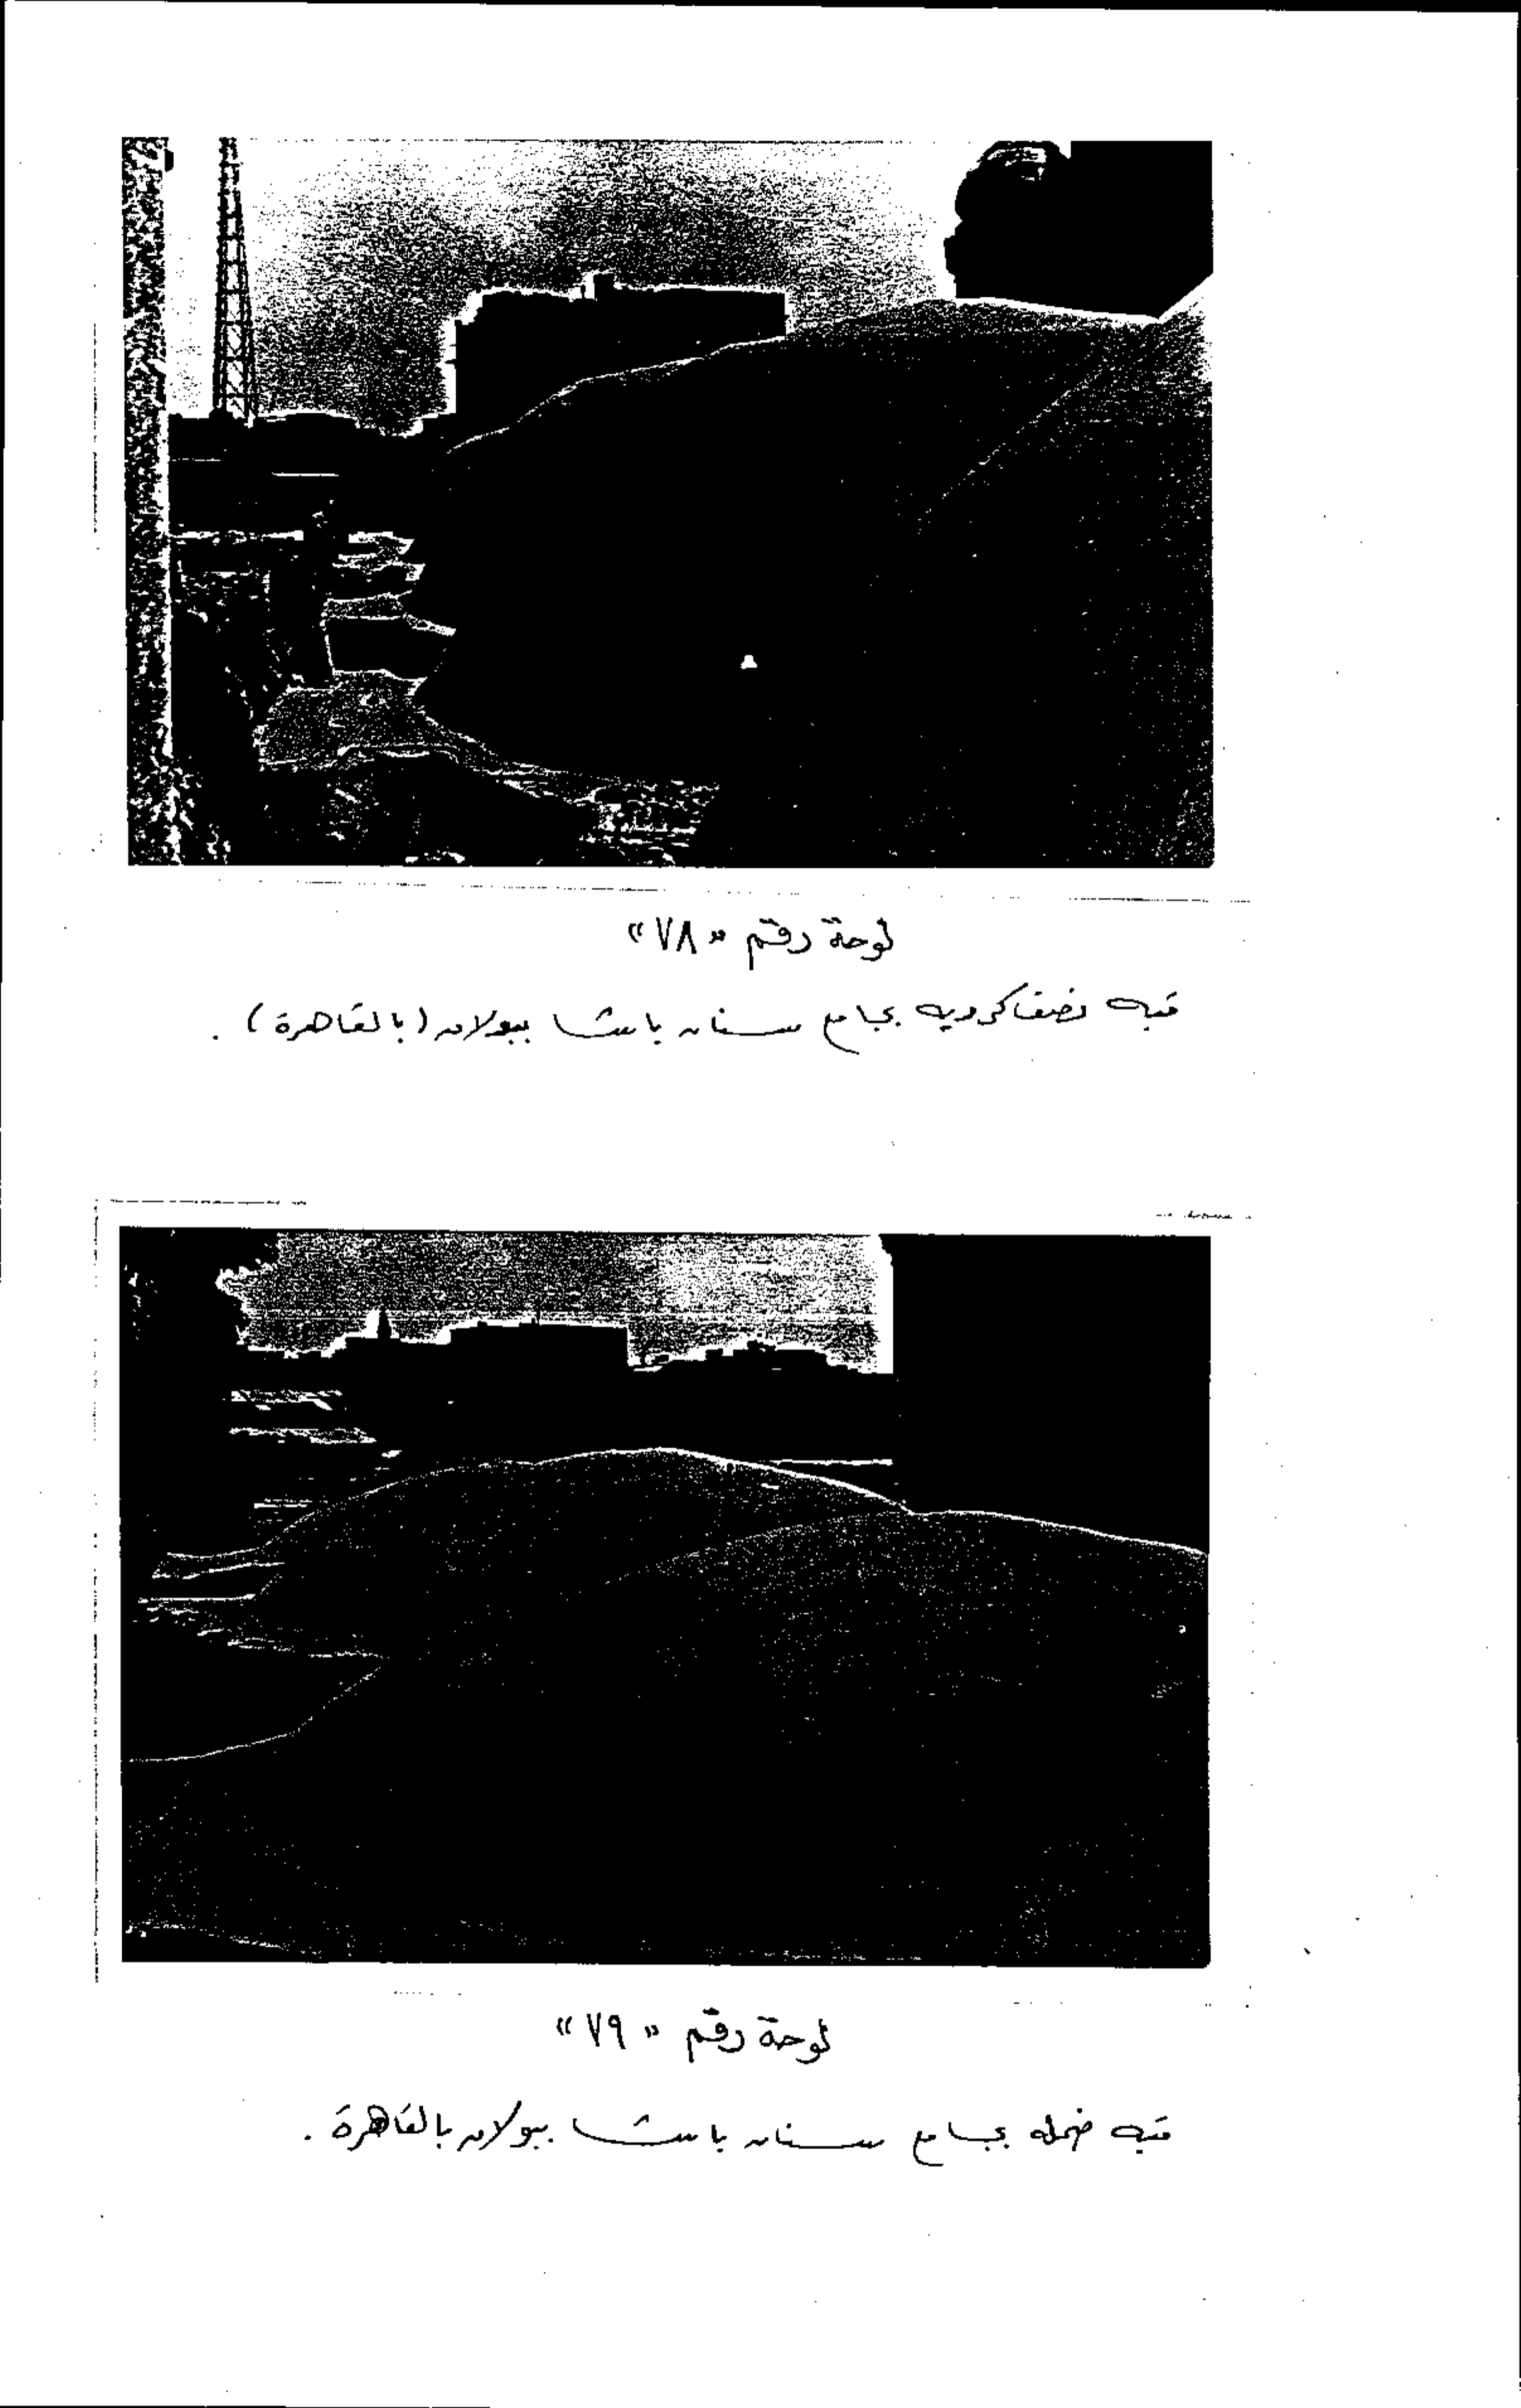 لوحة رقم «٧٨»
قبه نصف كرويه بجامع سنان باشا ببولاق (بالقاهرة) .
لوحة رقم «٧٩»
قبه ضحله بجامع سنان باشا ببولاق بالقاهرة .